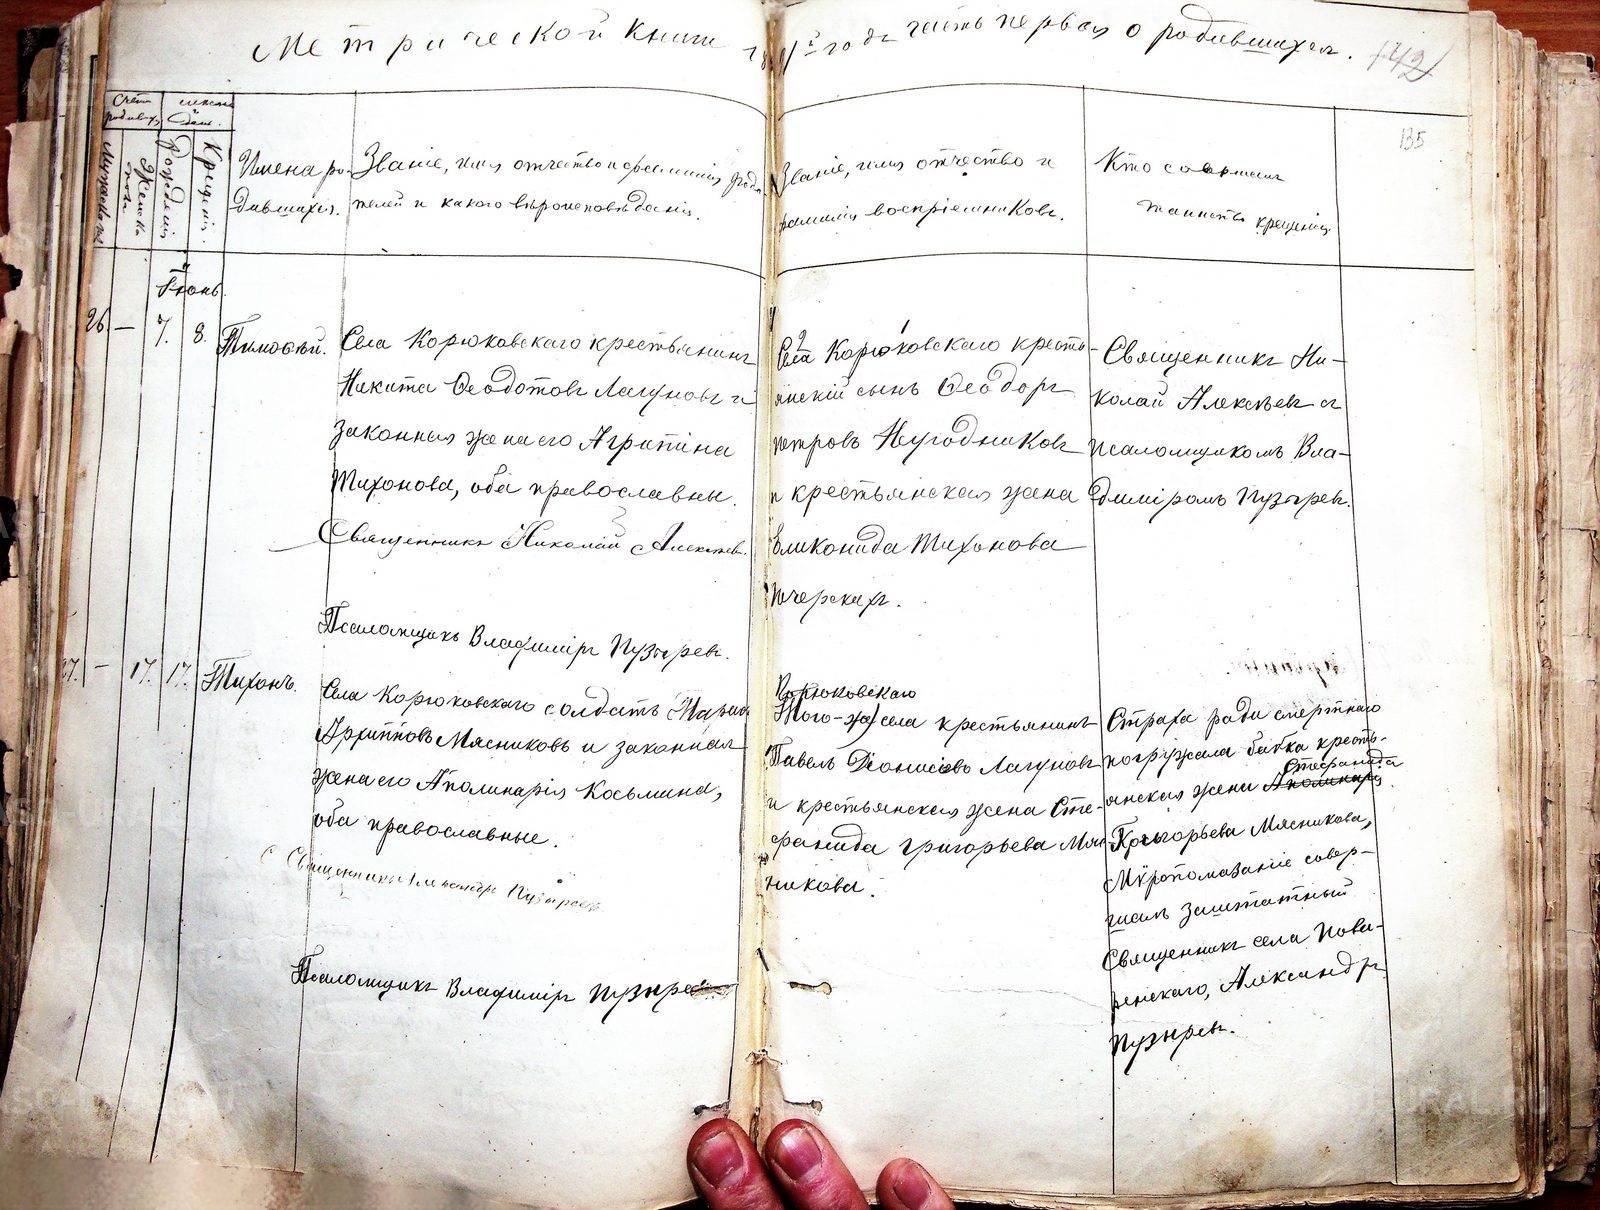 Метрической книги 18 го года часть первая о родившихся.
142
135
Счетъ родивш.
Мужеска пола
Женска пола
Рожденія
Крещенія.
Имена ро-
дившихся.
Званіе, имя отчество и фамилія роди-
телей и какого вѣроисповѣданія.
Званіе, имя отчество и
фамилія воспріемниковъ.
Кто совершалъ
таинство крещенія
Іюнь.
26. — 7. 8. Тимоѳей.
Села Корюковскаго крестьянинъ
Никита Ѳеодотовъ Лагуновъ и
законная жена его Агрипина
Тихонова, оба православны.
Священникъ Николай Алексѣевъ.
Псаломщикъ Владиміръ Пузыревъ.
Села Корюковскаго кресть-
янскій сынъ Ѳеодоръ
Петровъ
и крестьянская жена
Еликонида Тихонова
Печерскихъ.
Священникъ Ни-
колай Алексѣевъ съ
псаломщикомъ Вла-
диміромъ Пузыревъ.
37. — 17. 17. Тихонъ.
Села Корюковскаго солдатъ
Архипповъ Мясниковъ и законная
жена его Аполинарія Косьмина,
оба православные.
Священникъ Александръ Пузыревъ
Псаломщикъ Владиміръ Пузыревъ
Корюковскаго
Того-же села крестьянинъ
Павелъ Діонисіевъ Лагуновъ
и крестьянская жена Сте-
фанида Григорьева Мяс
никова.
Страха ради смертнаго
погружала бабка кресть-
янская жена Аполинарія
Стефанида
Григорьева Мясникова,
Мѵропомазаніе совер-
шалъ заштатный
Священникъ села Пова-
ренскаго, Александръ
Пузыревъ.